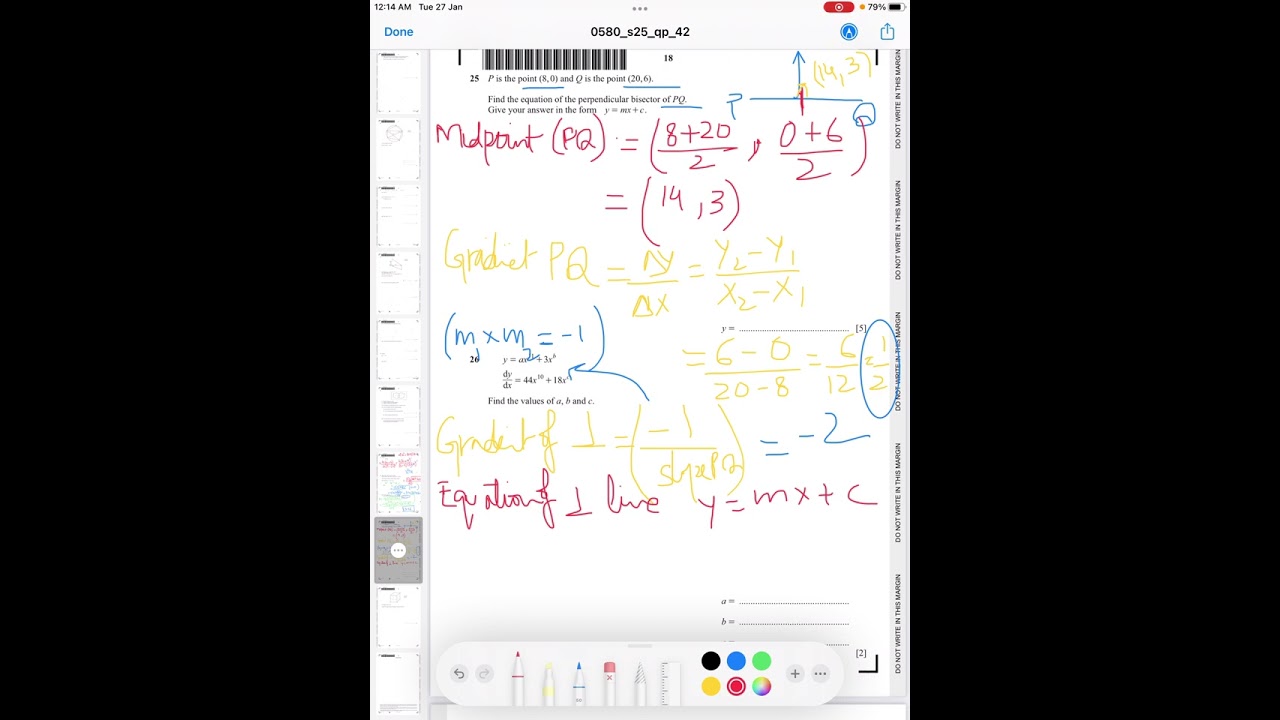 12:14 AM Tue 27 Jan
79%
Done
0580_s25_qp_42
18
25 P is the point (8, 0) and Q is the point (20, 6).
(14, 3)
Find the equation of the perpendicular bisector of PQ.
Give your answer in the form y = mx + c.
P
Midpoint (PQ) = (8+20/2, 0+6/2)
= (14, 3)
Gradient PQ = Δy/Δx = Y₂-Y₁/X₂-X₁
y = [5]
(m₁ × m₂ = -1)
= 6-0/20-8 = 6/12 = 1/2
26 y = ax + 3x⁶
dy/dx = 44x¹⁰ + 18x
Find the values of a, b and c.
Gradient of ⊥ = (-1/slope PQ) = -2
Equation of ⊥ line y = mx + c
a =
b =
[2]
DO NOT WRITE IN THIS MARGIN
DO NOT WRITE IN THIS MARGIN
DO NOT WRITE IN THIS MARGIN
DO NOT WRITE IN THIS MARGIN
DO NOT WRITE IN THIS MARGIN